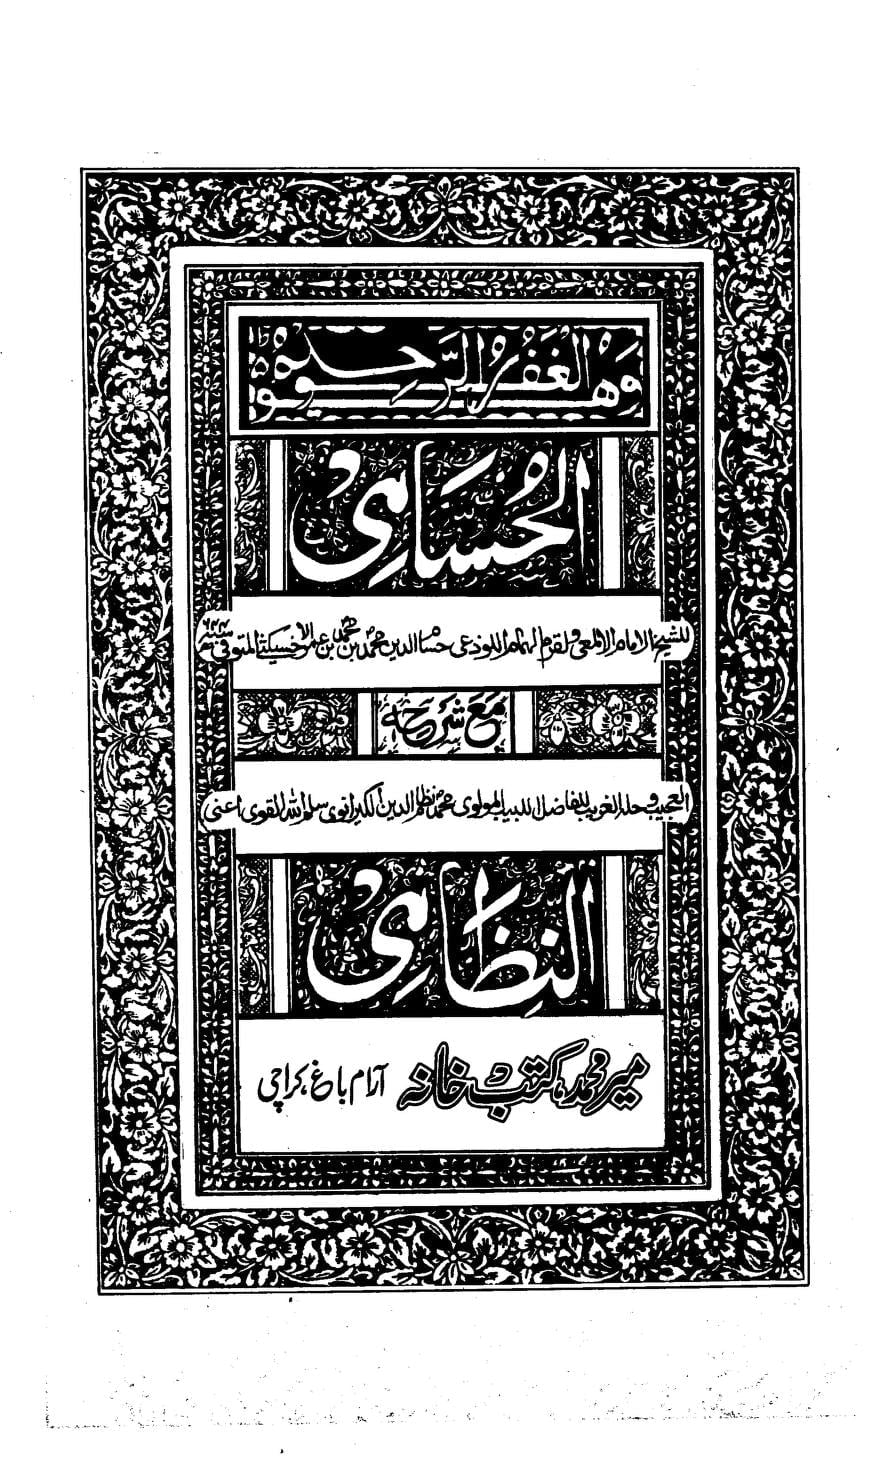 وَهُوَ الْغَفُوْرُ الرَّحِيْمُ
الحُسَّامِي
للشيخ الامام الالمعى والقرم الهمام اللوذعى حسام الدين محمد بن محمد بن عمر الاخسيكثى المتوفى سنة ٦٤٤
مَعَ شَرْحِهِ
العجيب وحله الغريب للفاضل اللبيب المولوى محمد نظام الدين الكيرانوى سلمه الله القوى (اعنى)
النِظَامِي
مير محمد، كتب خانه آرام باغ، كراچی